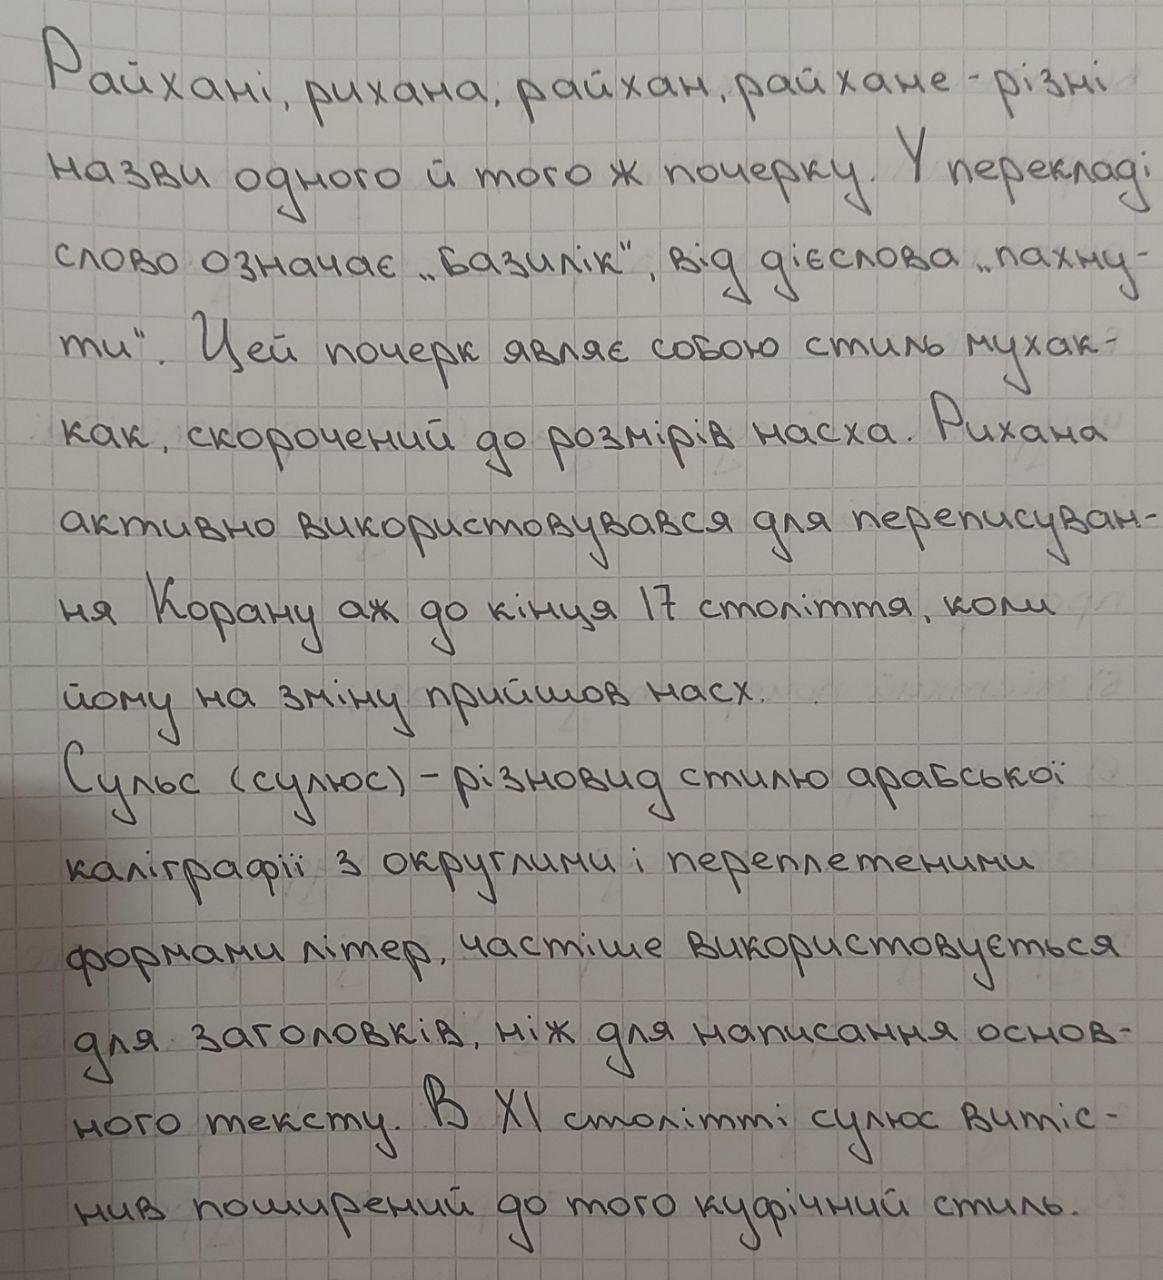 Райхані, рихана, райхан, райхане - різні
назви одного й того ж почерку. У перекладі
слово означає „базилік“, від дієслова „пахну-
ти“. Цей почерк являє собою стиль мухак-
как, скорочений до розмірів насха. Рихана
активно використовувався для переписуван-
ня Корану аж до кінця 17 століття, коли
йому на зміну прийшов насх.
Сульс (сулюс) - різновид стилю арабської
каліграфії з округлими і переплетеними
формами літер, частіше використовується
для заголовків, ніж для написання основ-
ного тексту. В XI столітті сулюс витіс-
нив поширений до того куфічний стиль.